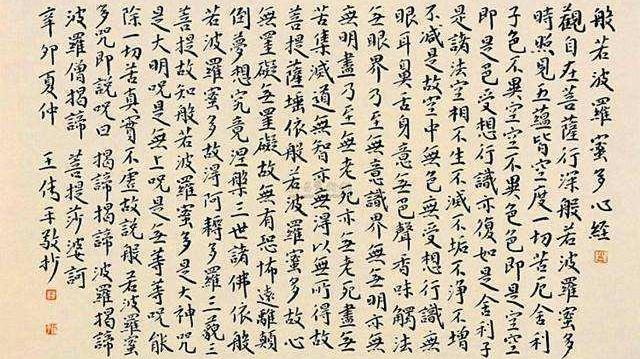 般若波羅蜜多心經
觀自在菩薩行深般若波羅蜜多
時照見五蘊皆空度一切苦厄舍利
子色不異空空不異色色即是空空
即是色受想行識亦復如是舍利子
是諸法空相不生不滅不垢不淨不增
不減是故空中無色無受想行識無
眼耳鼻舌身意无色聲香味觸法
无眼界乃至無意識界無無明亦無
無明盡乃至無老死亦无老死盡无
苦集滅道無智亦無得以無所得故
菩提薩埵依般若波羅蜜多故心
無罣礙无罣礙故無有恐怖遠離顛
倒夢想究竟涅槃三世諸佛依般
若波羅蜜多故得阿耨多羅三藐三
菩提故知般若波羅蜜多是大神咒
是大明咒是無上咒是無等等咒能
除一切苦真實不虛故說般若波羅蜜
多咒即說咒曰 揭諦揭諦 波羅揭諦
波羅僧揭諦 菩提莎婆訶
辛卯夏仲 王 敬抄